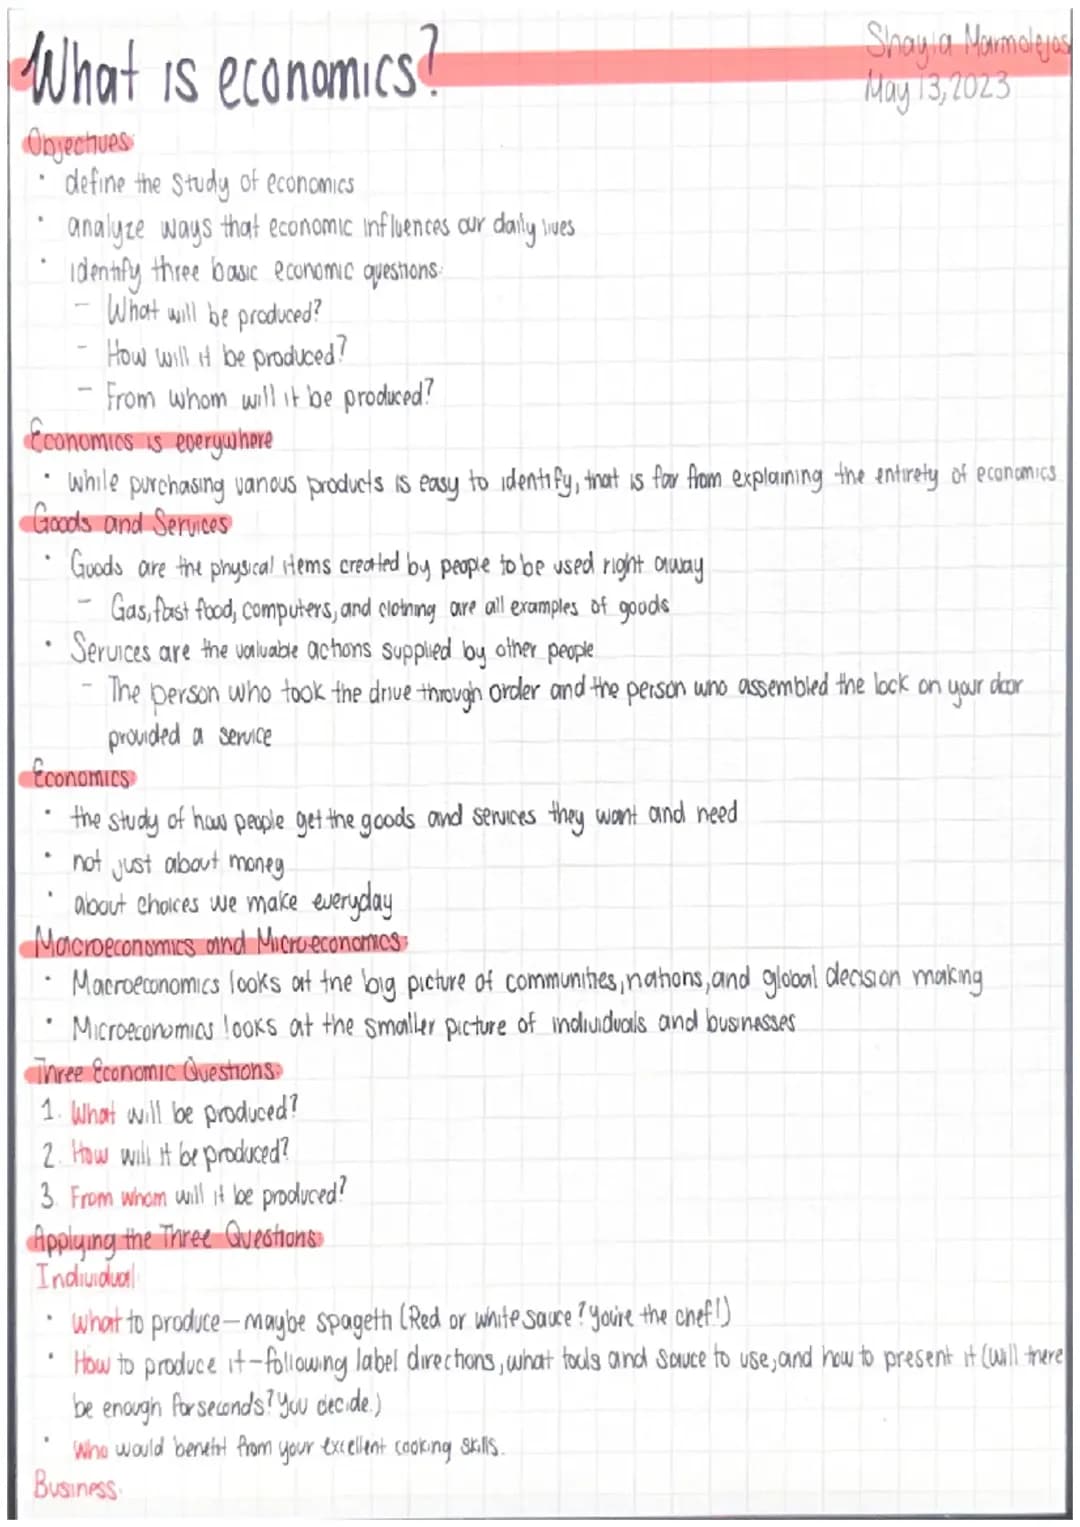 What is economics?
Shayla Marmolejos
May 13, 2023
Objectives:
• define the study of economics
• analyze ways that economic influences our daily lives
• identify three basic economic questions:
- What will be produced?
- How will it be produced?
- From whom will it be produced?
Economics is everywhere
• while purchasing various products is easy to identify, that is far from explaining the entirety of economics
Goods and Services
• Goods are the physical items created by people to be used right away
- Gas, fast food, computers, and clothing are all examples of goods
• Services are the valuable actions supplied by other people
- The person who took the drive through order and the person who assembled the lock on your door
provided a service
Economics:
• the study of how people get the goods and services they want and need
• not just about money
• about choices we make everyday
Macroeconomics and Microeconomics:
• Macroeconomics looks at the big picture of communities, nations, and global decision making
• Microeconomics looks at the smaller picture of individuals and businesses
Three Economic Questions:
1. What will be produced?
2. How will it be produced?
3. From whom will it be produced?
Applying the Three Questions:
Individual:
• What to produce - maybe spagetti (Red or white sauce? You're the chef!)
• How to produce it - following label directions, what tools and sauce to use, and how to present it (will there
be enough for seconds? You decide.)
• Who would benefit from your excellent cooking skills.
Business: